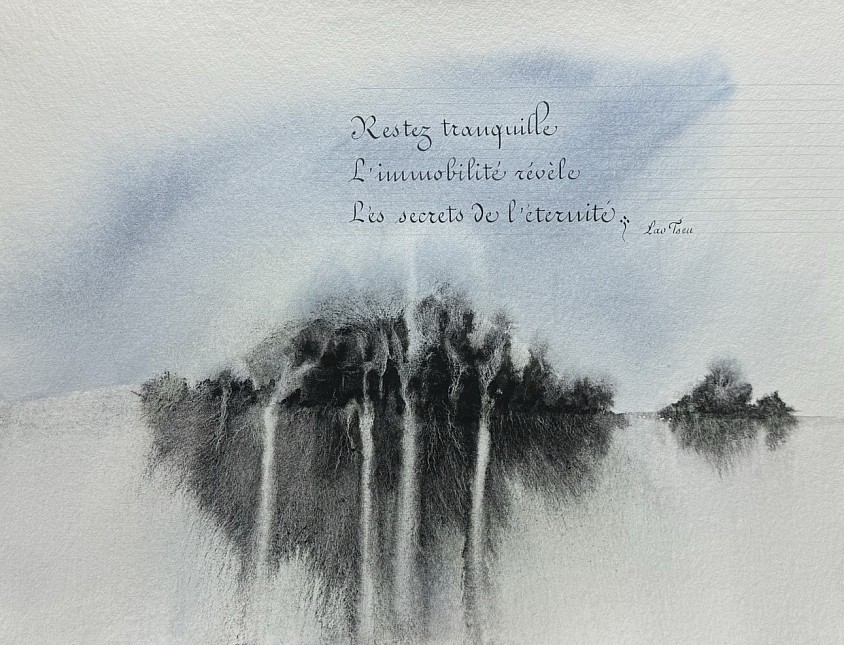 Restez tranquille
L'immobilité révèle
Lès secrets de l'éternité
Lao Tseu